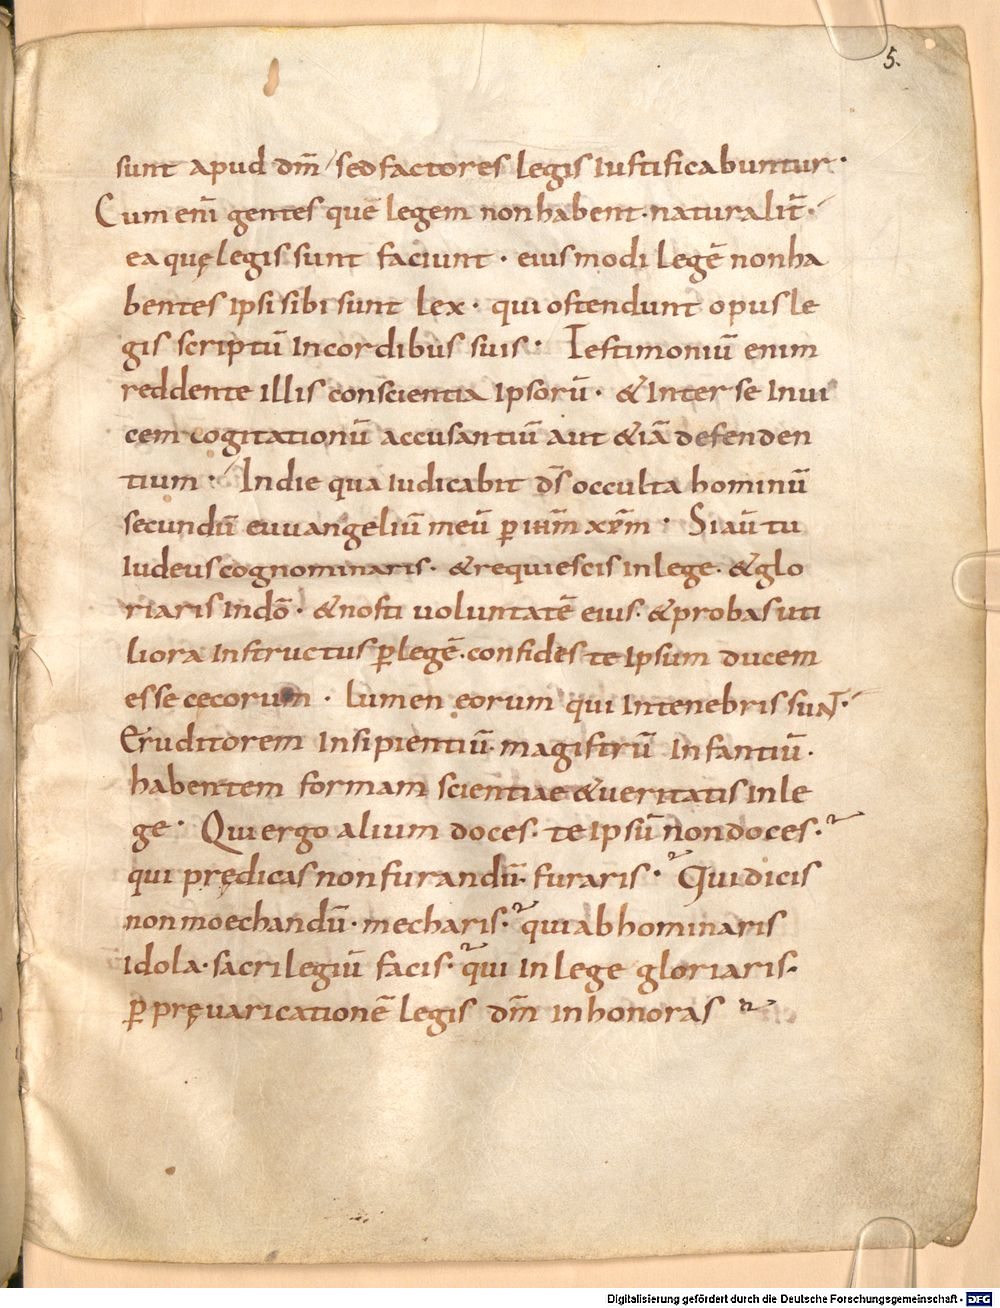 5.
sunt apud dm̄ / sed factores legis Iustificabuntur·
Cum eni̅ gentes que̅ legem non habent· naturalit̅·
ea quę legis sunt faciunt · eiusmodi lege̅ non ha
bentes Ipsi sibi sunt lex · qui ostendunt opus le
gis scriptu̅ In cordibus suis · Testimoniu̅ enim
reddente Illis conscientia Ipsoru̅ · & Inter se Inui
cem cogitationu̅ accusantiu̅ aut &ia̅ defenden
tium · / In die qua Iudicabit d̅s occulta hominu̅
secundu̅ euuangeliu̅ meu̅ p̅ ih̅m xp̅m · Si au̅ tu
Iudeus cognominaris · & requiescis In lege · & glo
riaris In do̅ · & nosti uoluntate̅ eius · & probas uti
liora Instructus p̅ lege̅ · confides te Ipsum ducem
esse cecorum · lumen eorum qui In tenebris sunt·
Eruditorem Insipientiu̅· magistru̅ Infantiu̅ ·
habentem formam scientiae & ueritatis In le
ge · Qui ergo alium doces · te Ipsu̅ non doces ·
qui prędicas non furandu̅· furaris · Qui dicis
non moechandu̅ · mecharis · qui abhominaris
Idola · sacrilegiu̅ facis · qui In lege gloriaris·
p̅ pręuaricatione̅ legis dm̅ Inhonoras
Digitalisierung gefördert durch die Deutsche Forschungsgemeinschaft - DFG